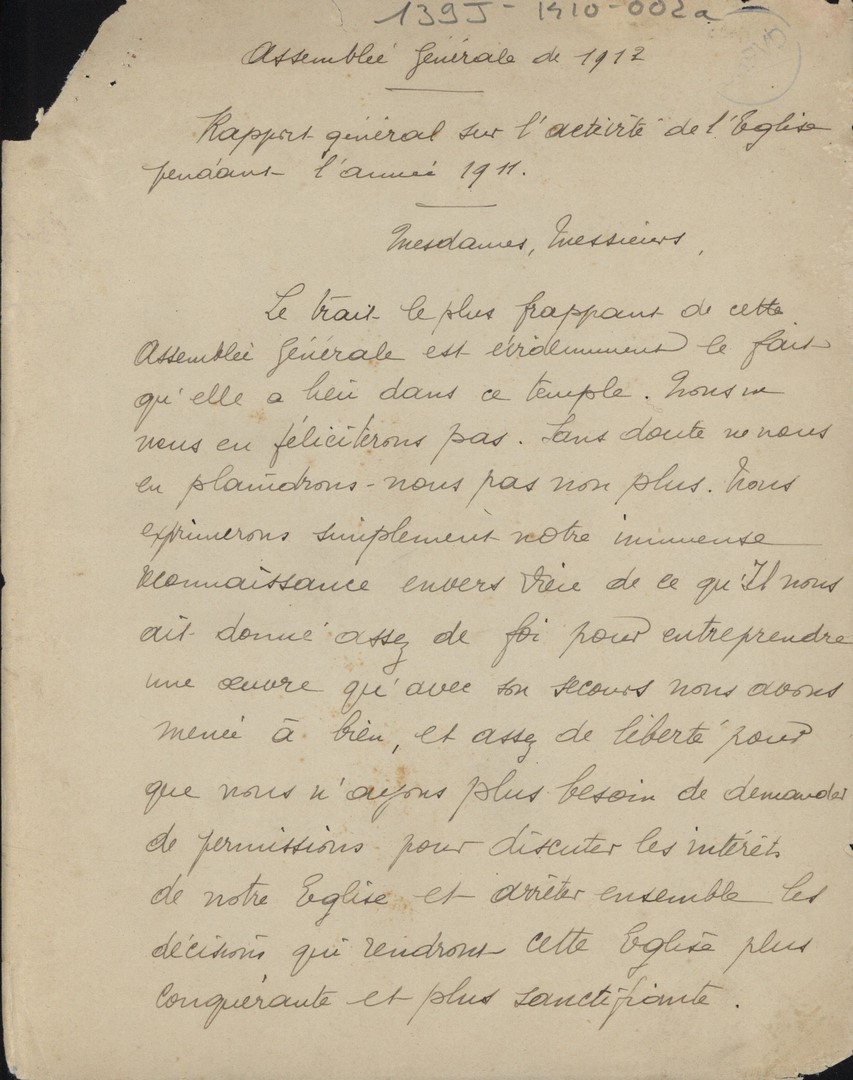 139J-1410-002a
Assemblée Générale de 1912
Rapport général sur l'activité de l'Eglise
pendant l'année 1911.
Mesdames, Messieurs,
Le trait le plus frappant de cette
Assemblée Générale est évidemment le fait
qu'elle a lieu dans ce temple. Nous ne
nous en féliciterons pas. Sans doute ne nous
en plaindrons-nous pas non plus. Nous
exprimerons simplement notre immense
reconnaissance envers Dieu de ce qu'Il nous
ait donné assez de foi pour entreprendre
une œuvre qu'avec son secours nous avons
menée à bien, et assez de liberté pour
que nous n'ayons plus besoin de demander
de permissions pour discuter les intérêts
de notre Eglise et arrêter ensemble les
décisions qui rendront cette Eglise plus
conquérante et plus sanctifiante.